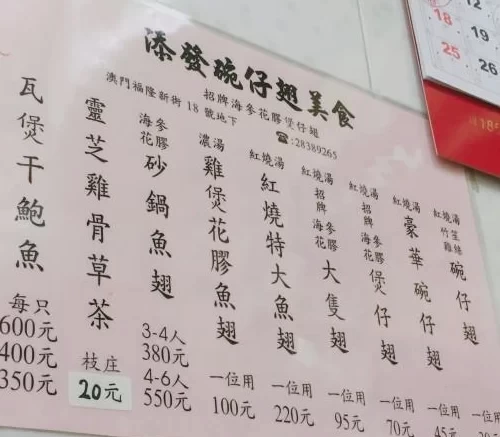 添發碗仔翅美食
招牌海參花膠煲仔翅
澳門福隆新街 18 號地下
☎:28389265
紅燒湯
竹笙雞絲
碗仔翅
紅燒湯
豪華碗仔翅
一位用
45元
紅燒湯
招牌
海參花膠
煲仔翅
一位用
70元
紅燒湯
招牌
海參花膠
大隻翅
一位用
95元
紅燒湯
紅燒特大魚翅
一位用
220元
濃湯
雞煲花膠魚翅
一位用
100元
海參花膠
砂鍋魚翅
3-4人
380元
4-6人
550元
靈芝雞骨草茶
枝庄
20元
瓦煲干鮑魚
每只
600元
400元
350元
12
18 19
25 26